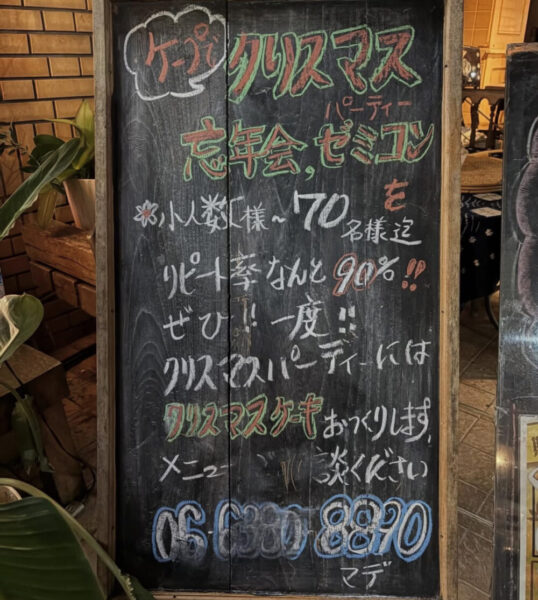 ケープで
クリスマス
パーティー
忘年会,ゼミコン
を
❀小人数様～70名様迄
リピート率なんと90%!!
ぜひ!!一度!!
クリスマスパーディーには
クリスマスケーキおつくりします,
メニュー 談ください
06-6380-8890
マデ